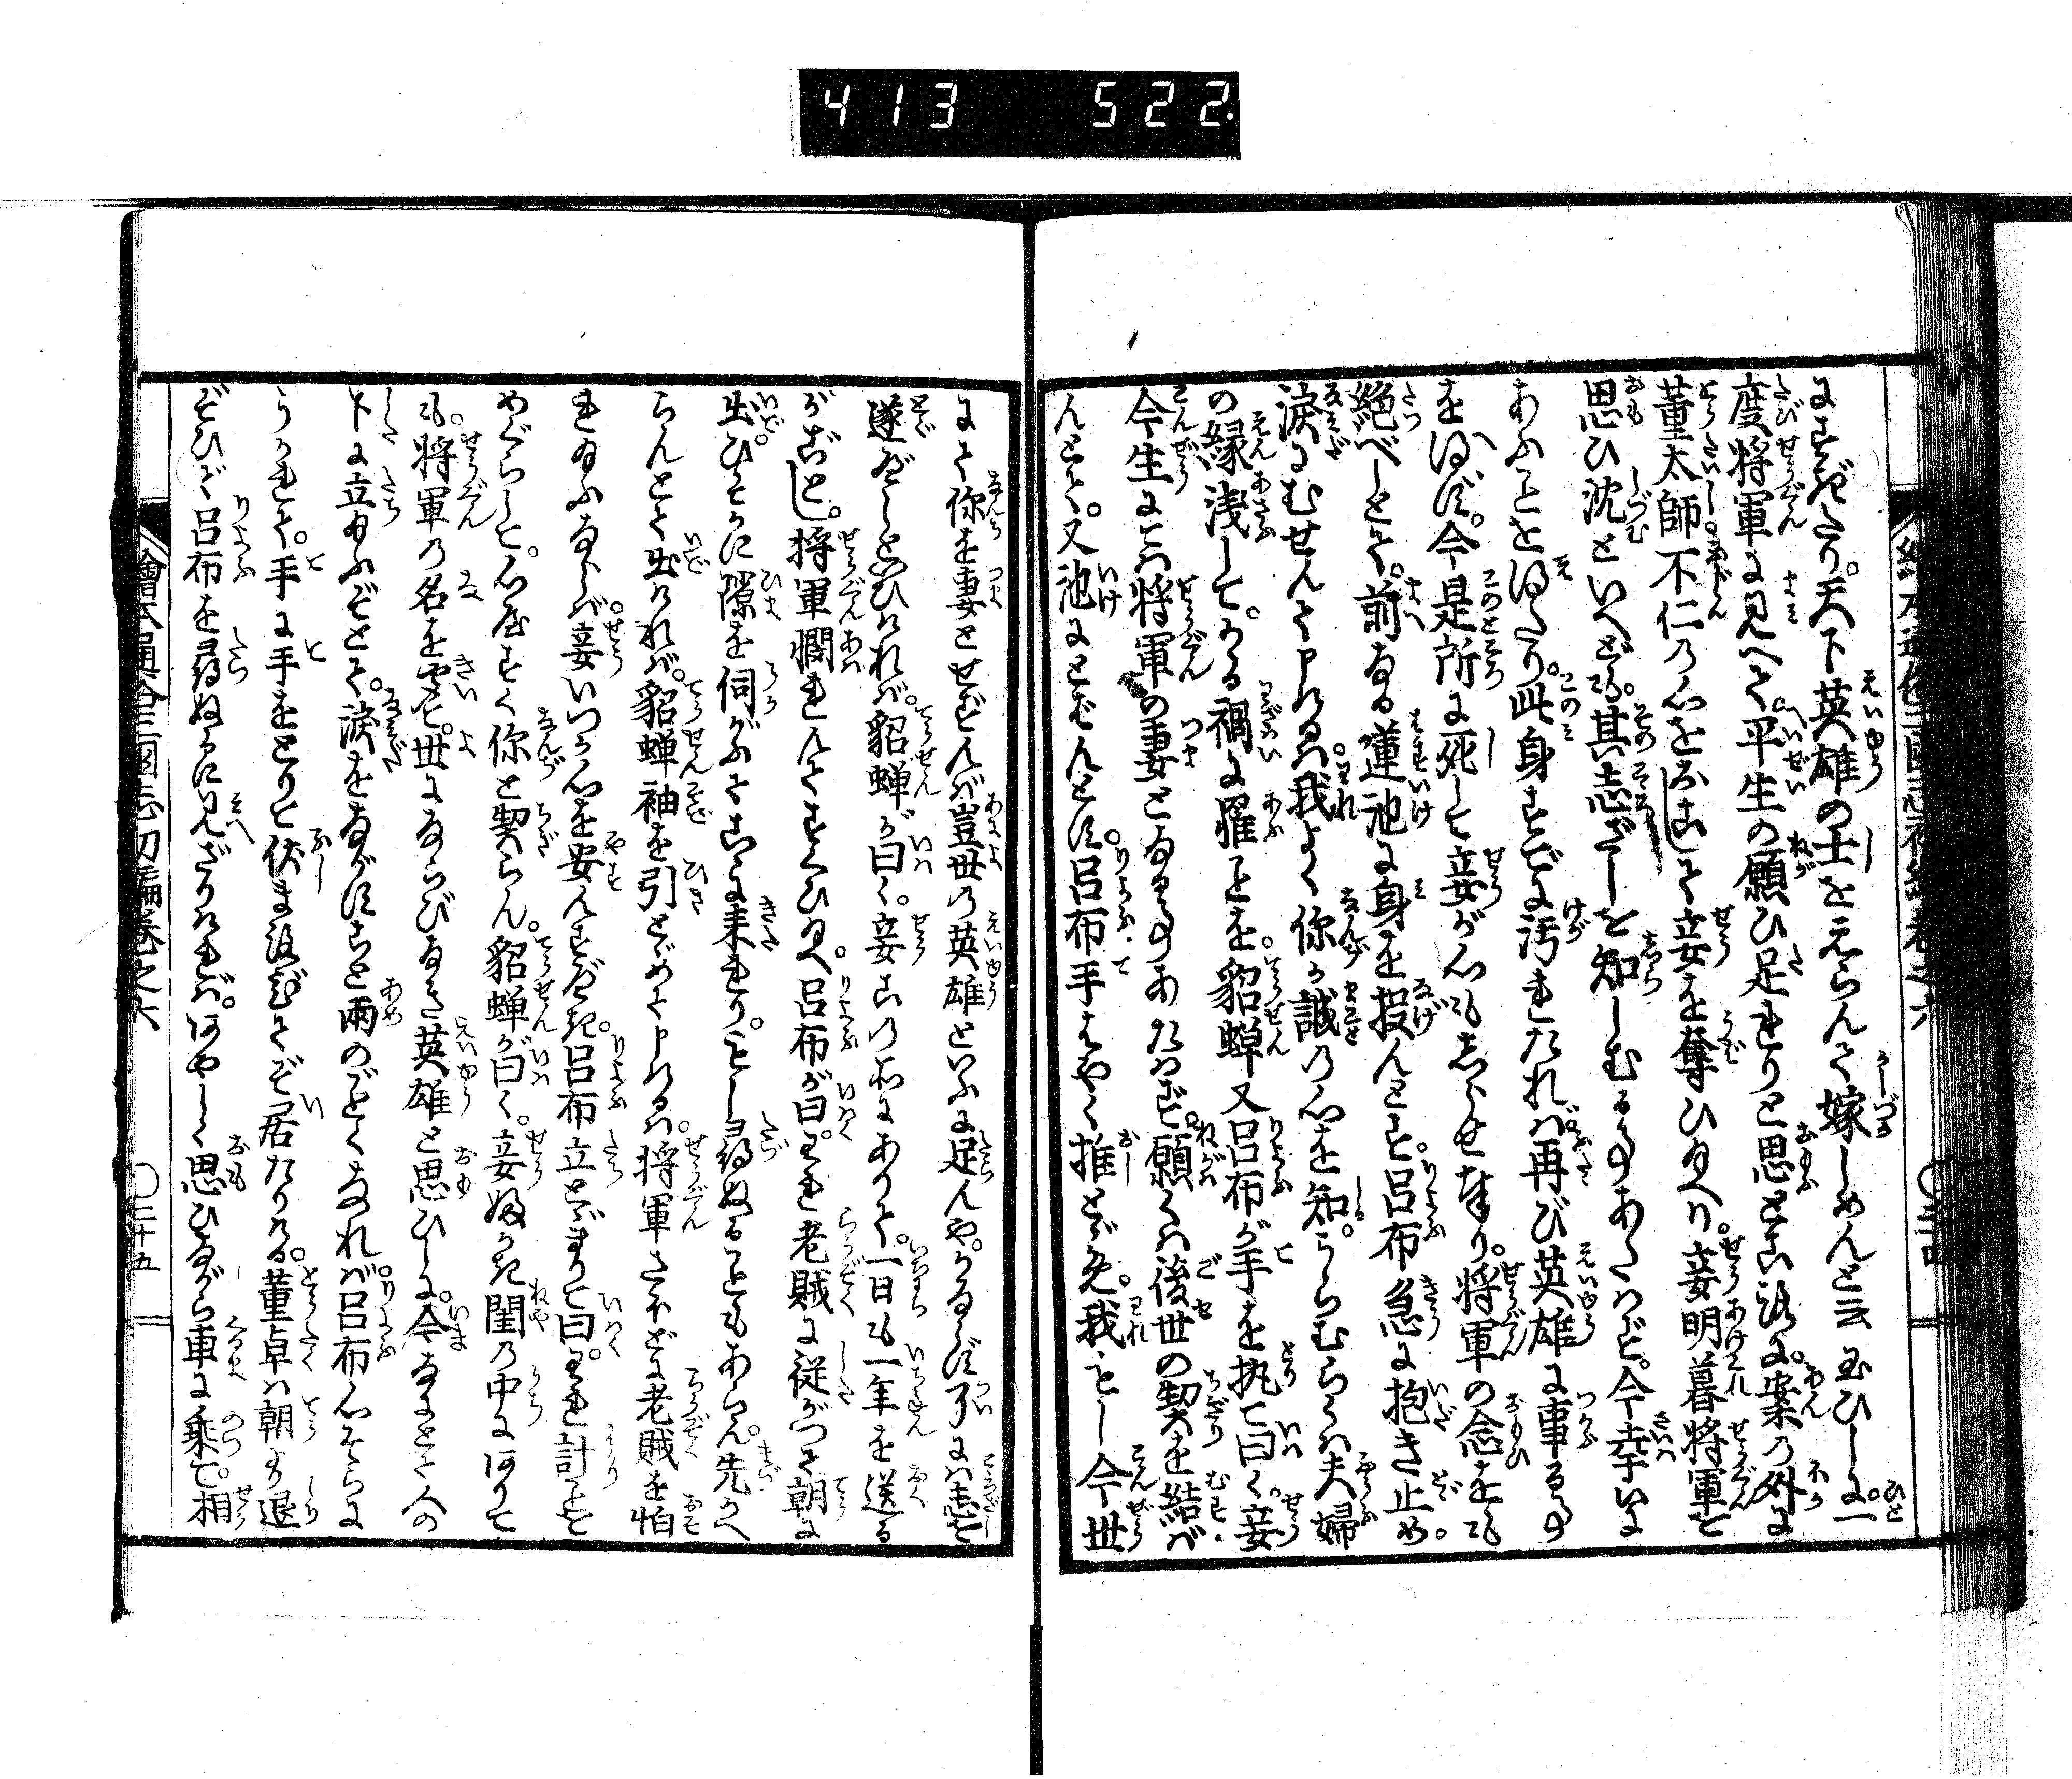 413 522.
にすぎたり。天下英雄の士をえらんで嫁しめんと云玉ひしに。一
度将軍に見へて。平生の願ひ足れりと思ところに。案の外に
董太師不仁の心をおこして妾を奪ひ玉へり。妾明暮将軍を
思ひ沈といへども。其志ざしを知しむる事あたはず。今幸いに
あふことを得たり。此身すでに汚れたれば再び英雄に事る事
を得ず。今是所に死して妾が心もしらせ奉り。将軍の念をも
絶べしとて。前なる蓮池に身を投んとす。呂布急に抱き止め。
涙にむせんで申けるは。我よく你が誠の心を知。うらむらくは夫婦
の縁浅して。かゝる禍に罹ことを。貂蝉又呂布が手を執て曰く。妾
今生にては将軍の妻となる事あたはず。願くは後世の契を結ば
んとて。又池にとびんとす。呂布手はやく推とゞめ。我もし今世
にて你を妻とせずんば豈世の英雄といふに足んや。かならず了には志を
遂べしといひければ。貂蝉が曰く。妾この所にありて。一日も一年を送る
がごとし。将軍憫れんですくひ玉へ。呂布が曰。われ老賊に従がつて朝に
出。ひそかに隙を伺がふてこゝに来れり。もし尋ぬることもあらん。先かへ
らんとて出ければ。貂蝉袖を引とゞめて申けるは。将軍さほどに老賊を怕
れ玉ふならば。妾いつか心を安んずべき。呂布立とゞまりて曰。われ計ことを
めぐらして。心やすく你と契らん。貂蝉が曰く。妾ふかき閨の中にありて
も。将軍の名を聞て。世にならびなき英雄と思ひしに。今なまじて人の
下に立玉ふぞとて。涙をながすこと雨のごとくなれば。呂布心そらに
うかれて。手に手をとりて伏まろびてぞ居たりける。董卓は朝より退
ぞひて呂布を尋ぬるに見へざりければ。あやしく思ひながら車に乗て。相
繪本通俗三國志初編巻之六
〇二十五